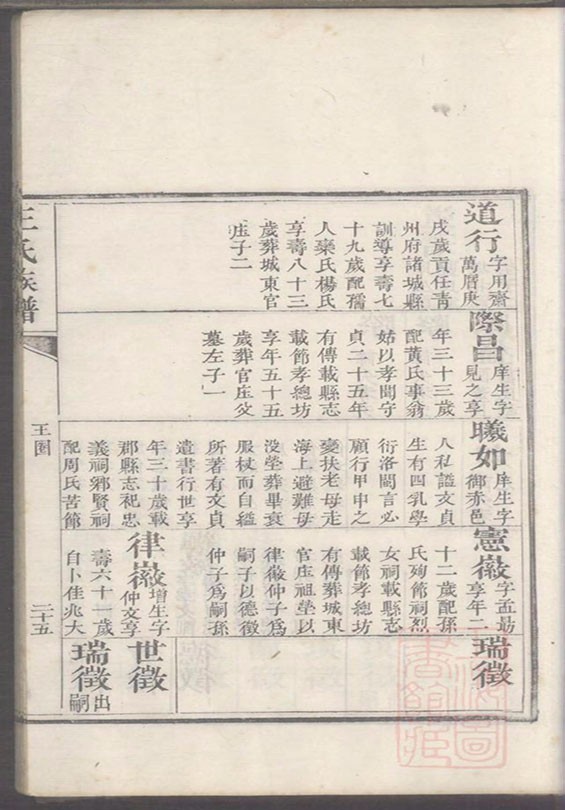 道行 字用齋
萬曆庚
戌歲貢任青
州府諸城縣
訓導享壽七
十九歲配孺
人欒氏楊氏
享壽八十三
歲葬城東官
庄子二
際昌 庠生字
見之享
年三十三歲
配黃氏事翁
姑以孝聞守
貞二十五年
有傳載縣志
載節孝總坊
享年五十五
歲葬官庄父
墓左子一
曦如 庠生字
御赤邑
人私謚文貞
生有四乳學
衍洛閩言必
顧行甲申之
變扶老母走
海上避難母
没塋葬畢衰
服杖而自縊
所著有文貞
遺書行世享
年三十歲載
郡縣志祀忠
義祠鄉賢祠
配周氏苦節
憲徵 字孟昜
享年二
十二歲配孫
氏殉節祠烈
女祠載縣志
載節孝總坊
有傳葬城東
官庄祖塋以
律徵仲子爲
嗣子以德徵
仲子爲嗣孫
律徵 增生字
仲文享
壽六十一歲
自卜佳兆大
瑞徵
世徵
瑞徵 出
嗣
王氏族譜
王圈
二十五